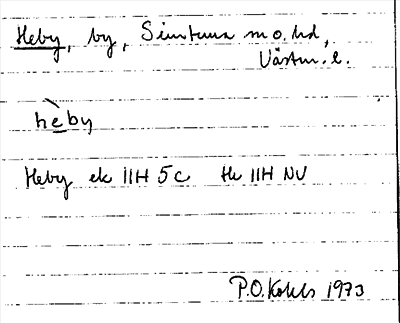 Heby, by, Simtuna m o. hd,
Västm. l.
hèby
Heby ek 11H 5c tk 11H NV
P.O. 1973